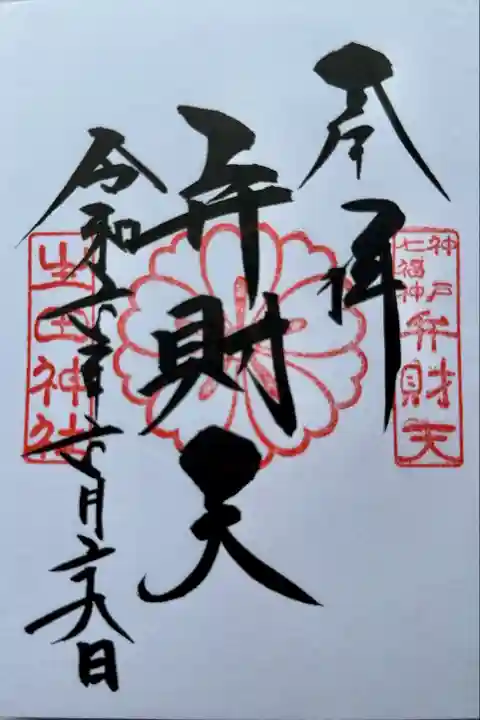 奉拝
神戸
七福神
弁財天
弁財天
生田神社
令和六年六月二十八日